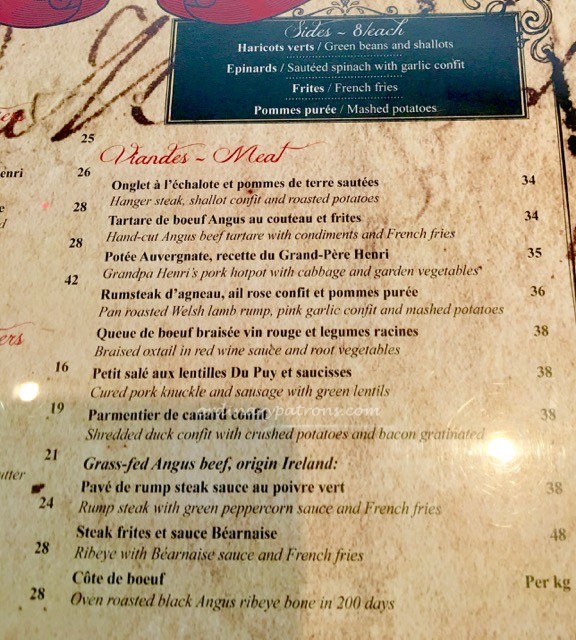 Sides ~ 8/each
Haricots verts / Green beans and shallots
Epinards / Sautéed spinach with garlic confit
Frites / French fries
Pommes purée / Mashed potatoes
25
Viandes ~ Meat
enri
26
Onglet à l'échalote et pommes de terre sautées 34
Hanger steak, shallot confit and roasted potatoes
28
Tartare de boeuf Angus au couteau et frites 34
Hand-cut Angus beef tartare with condiments and French fries
28
Potée Auvergnate, recette du Grand-Père Henri 35
Grandpa Henri's pork hotpot with cabbage and garden vegetables
42
Rumsteak d'agneau, ail rose confit et pommes purée 36
Pan roasted Welsh lamb rump, pink garlic confit and mashed potatoes
Queue de boeuf braisée vin rouge et legumes racines 38
Braised oxtail in red wine sauce and root vegetables
ers
16
Petit salé aux lentilles Du Puy et saucisses 38
Cured pork knuckle and sausage with green lentils
19
Parmentier de canard confit 38
Shredded duck confit with crushed potatoes and bacon gratinated
21
Grass-fed Angus beef, origin Ireland:
utter
Pavé de rump steak sauce au poivre vert 38
24
Rump steak with green peppercorn sauce and French fries
Steak frites et sauce Béarnaise 48
28
Ribeye with Béarnaise sauce and French fries
Côte de boeuf Per kg
28
Oven roasted black Angus ribeye bone in 200 days